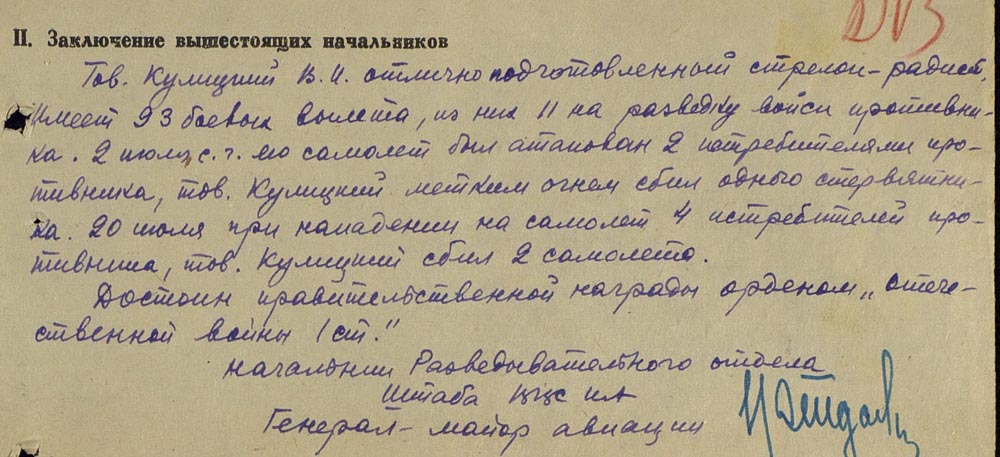 II. Заключение вышестоящих начальников
Тов. Кулицкий В.И. отлично подготовленный стрелок-радист.
Имеет 93 боевых вылета, из них 11 на разведку войск противни-
ка. 2 июля с.г. его самолет был атакован 2 истребителями про-
тивника, тов. Кулицкий метким огнем сбил одного стервятни-
ка. 20 июля при нападении на самолет 4 истребителей про-
тивника, тов. Кулицкий сбил 2 самолета.
Достоин правительственной награды орденом „Отече-
ственной войны 1 ст."
Начальник Разведывательного отдела
Штаба ВВС КА
Генерал-майор авиации